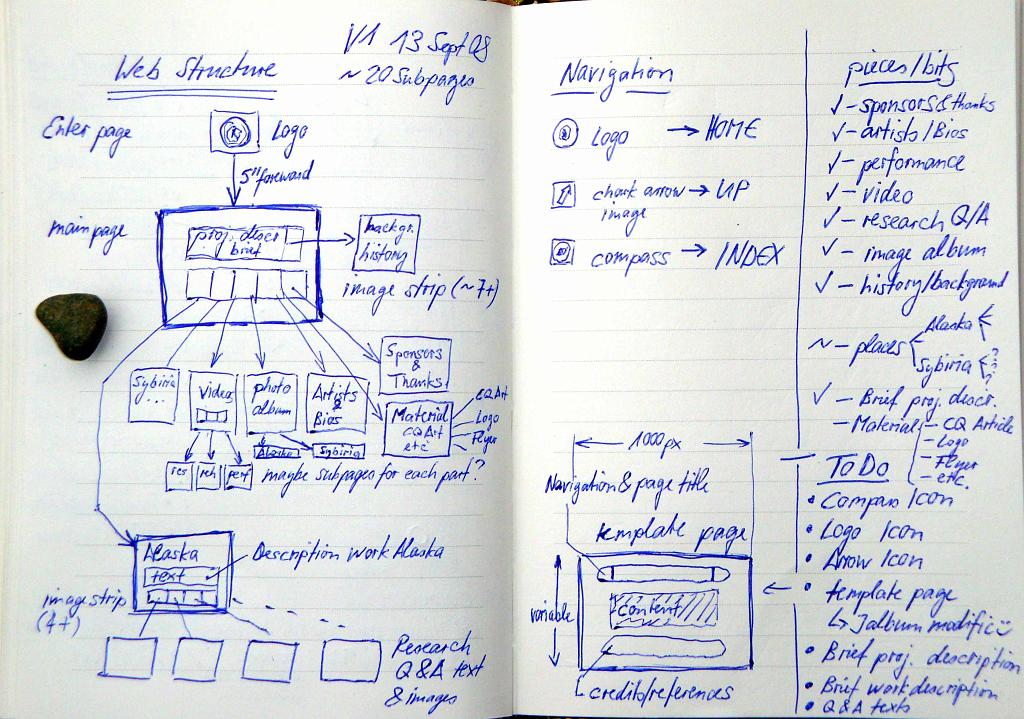 V1 13 Sept 08
Web Structure
~ 20 Subpages
Enter page
Logo
5" foreward
main page
proj. descr
brief
backgr.
history
image strip (~7+)
Sybiria
...
Video
photo
album
Artists
&
Bios
Sponsors
&
Thanks
Material
CQ Art
etc
CQ Art
Logo
Flyer
Alaska
Sybiria
res
reh
perf
maybe subpages for each part?
Alaska
text
Description work Alaska
image strip
(4+)
Research
Q&A text
& images
Navigation
Logo → HOME
chork arrow → UP
image
compass → INDEX
1000px
Navigation & page title
template page
variable
content
credits/references
pieces/bits
✓ - sponsors & thanks
✓ - artists/Bios
✓ - performance
✓ - video
✓ - research Q/A
✓ - image album
✓ - history/background
~ - places
Alaska
Sybiria
?
?
?
✓ - Brief proj. descr.
- Material
- CQ Article
- Logo
- Flyer
- etc.
ToDo
• Compass Icon
• Logo Icon
• Arrow Icon
← • template page
↳ Jalbum modific
• Brief proj. description
• Brief work description
• Q&A texts